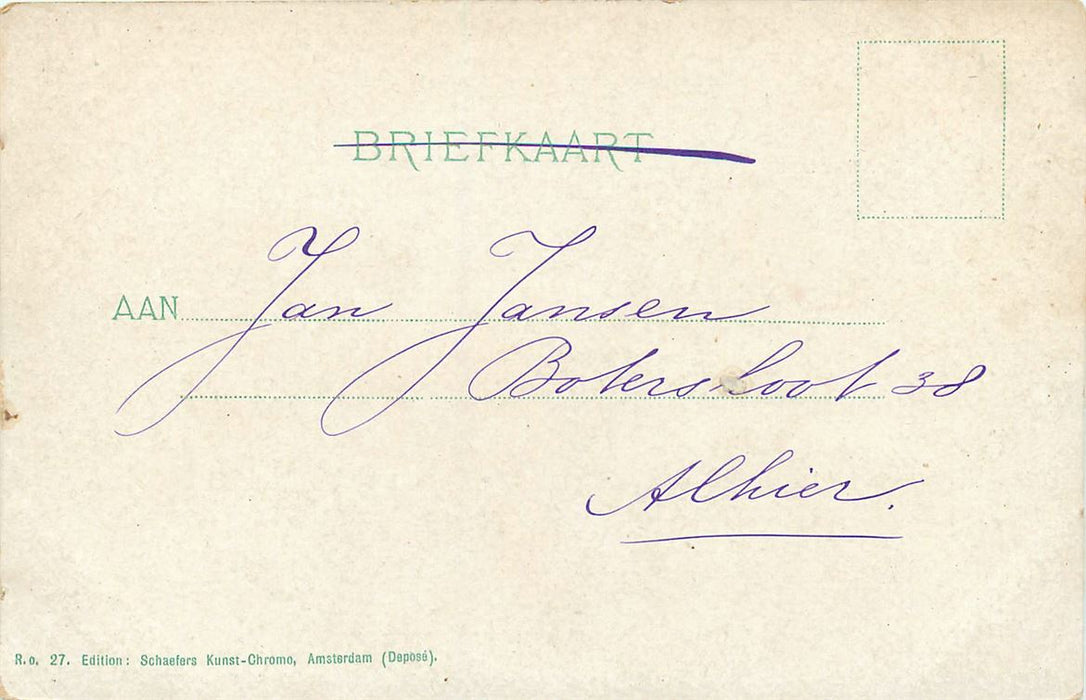 BRIEFKAART
AAN Jan Jansen
Botersloot 38
Alhier.
R.o. 27. Edition: Schaefers Kunst-Chromo, Amsterdam (Deposé).